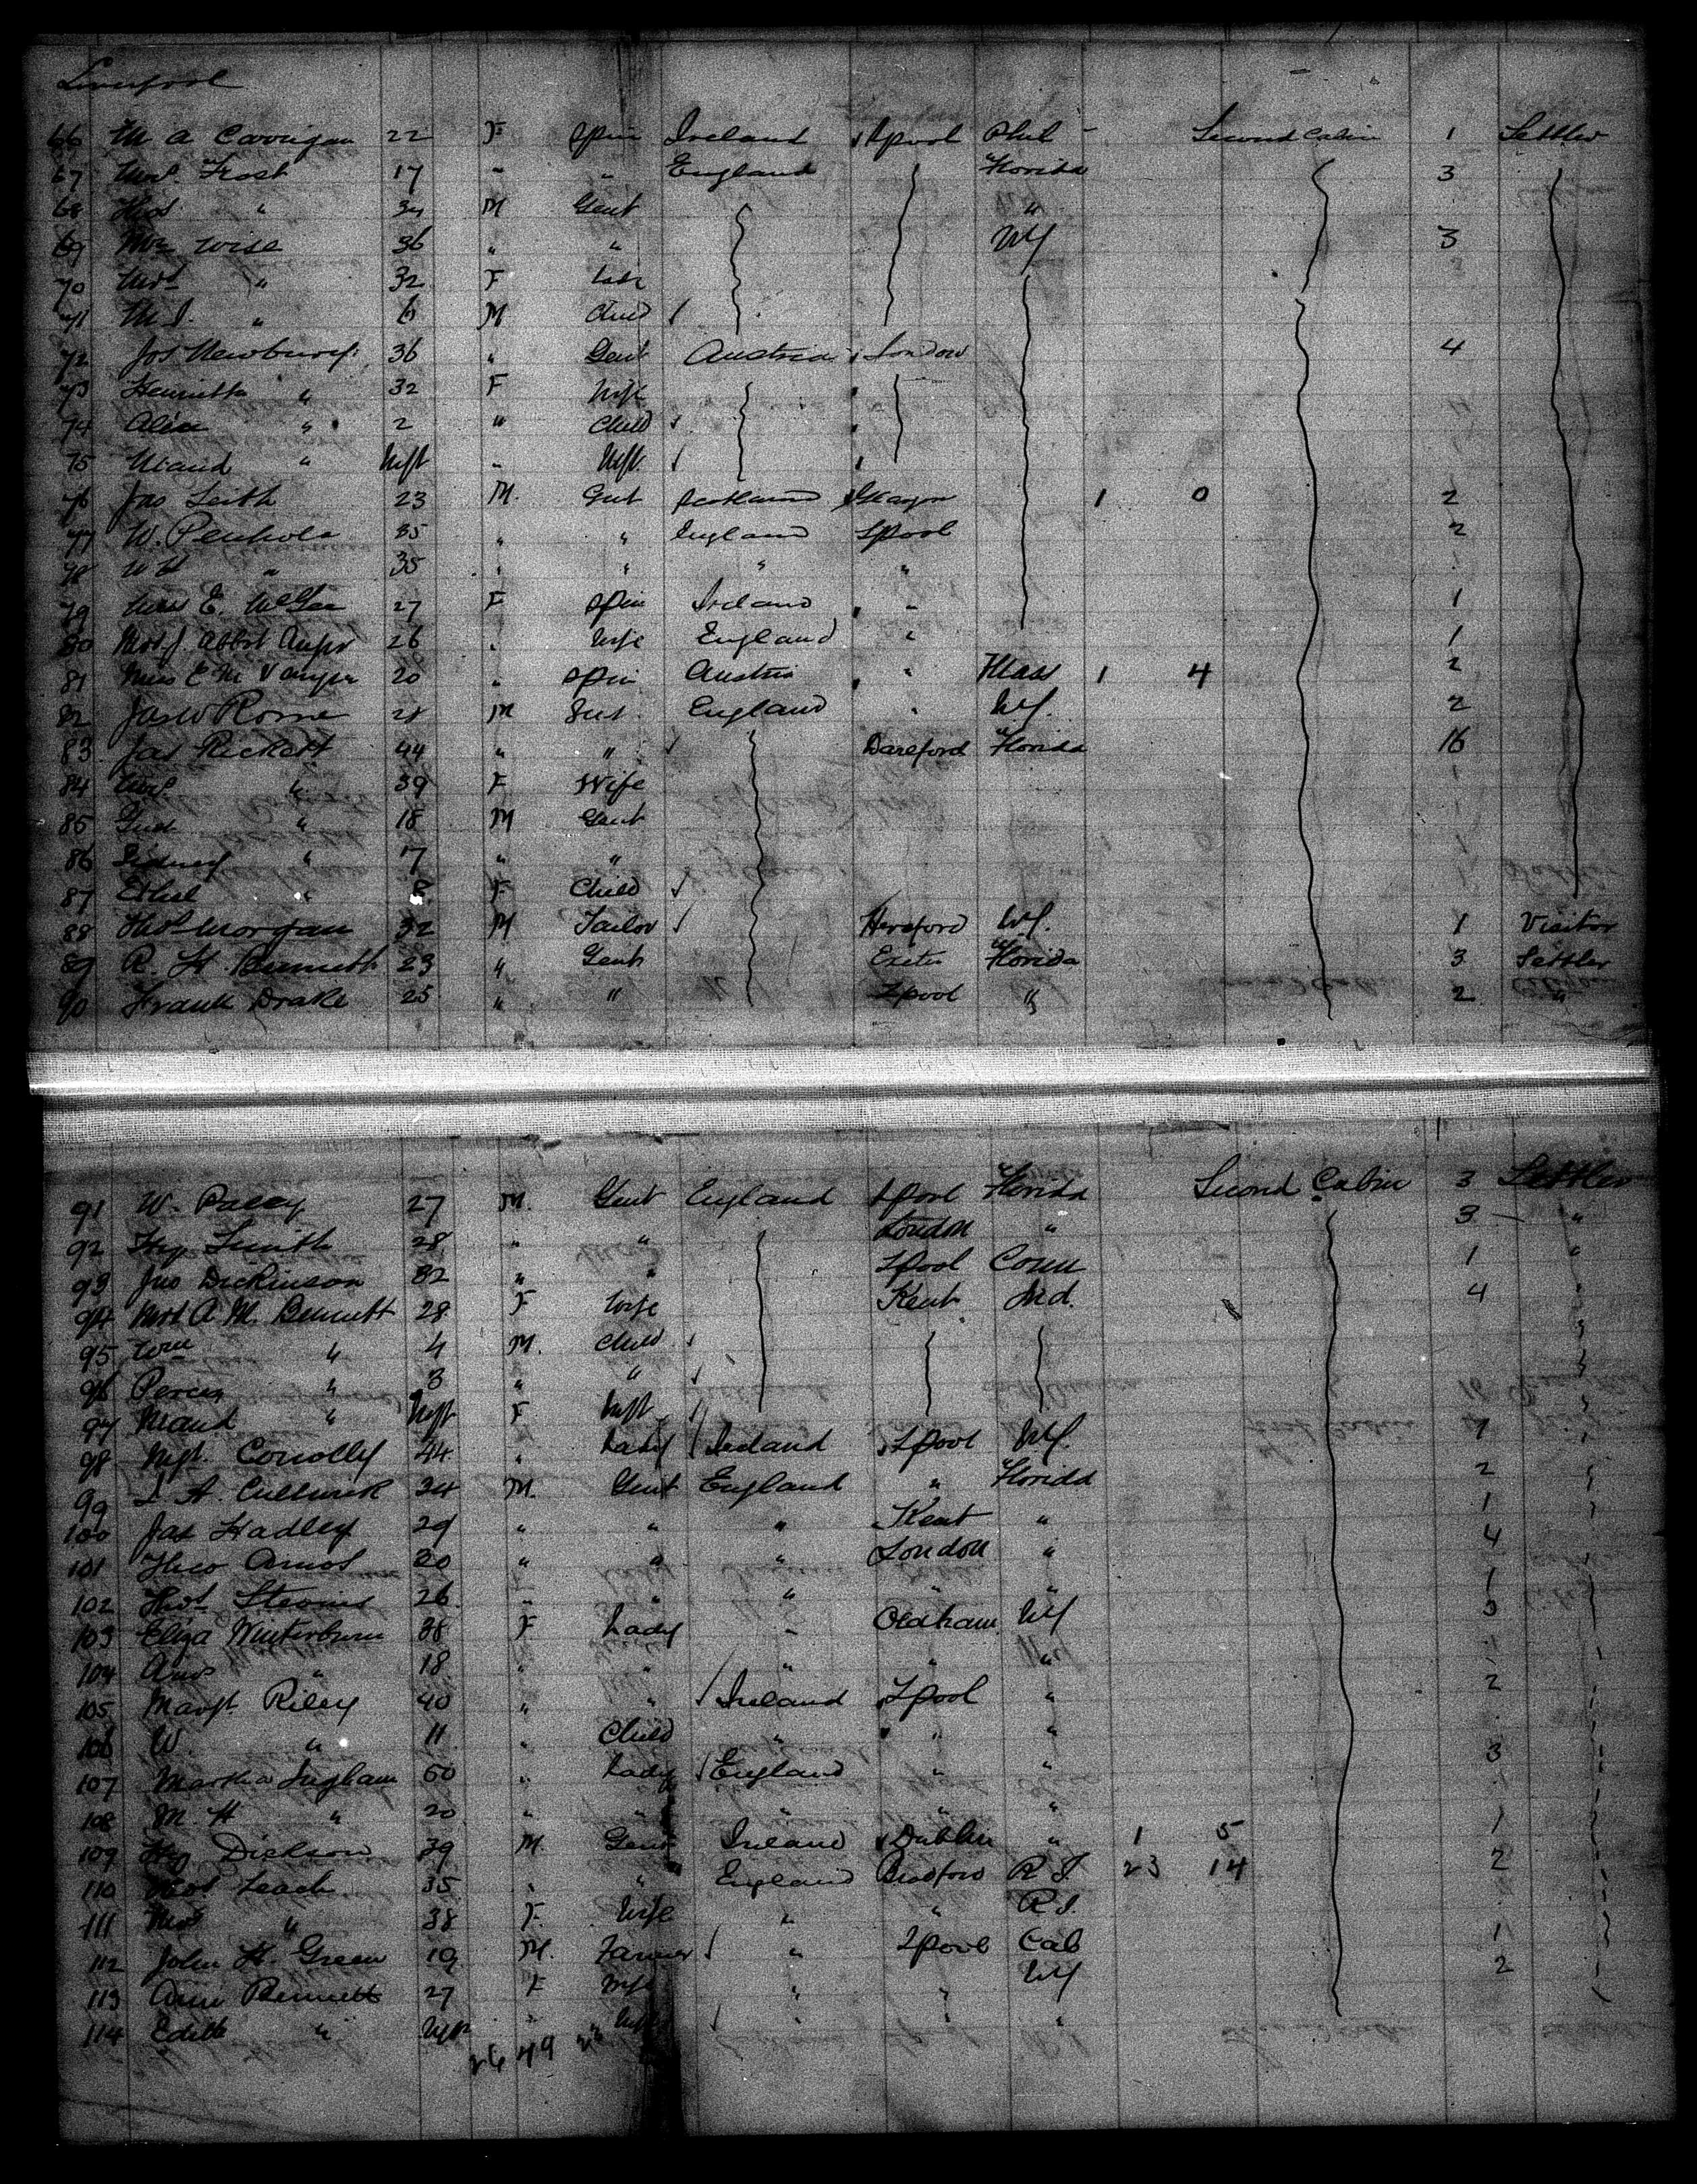 Liverpool
66 M A Corrigan 22 F Spin Ireland Lpool Phil - Second Cabin 1 Settler
67 Mrs. Frost 17 " " England Florida 3
68 Thos " 34 M Gent "
69 Mr Wise 36 " " NY 3
70 Mrs " 32 F
71 M.J. " 6 M Child
72 Jos Newbury 36 " Gent Austria London 4
73 Henrietta " 32 F Wife
74 Alice " 2 " Child
75 Maud " Inft " Inft.
76 Jno Leith 23 M. Gent Scotland Glasgow 1 0 2
77 W. Penhole 35 " " England Lpool 2
78 W H " 35 " " " "
79 Miss E. McGee 27 F Spin Ireland " 1
80 Mrs J. Abbot 26 " Wife England " 1
81 Miss E M 20 " Spin Austria " Mass 1 4 2
82 Jas W Rowe 28 M Gent. England " NY. 2
83 Jas Rickett 44 " " Florida 16
84 Mrs " 39 F Wife
85 " 18 M Gent
86 Sidney " 17 " "
87 Ethel " 8 F Child
88 Thos Morgan 32 M Tailor Hereford NY. 1 Visitor
89 R. H. Bennett 23 " Gent Exeter Florida 3 Settler
90 Frank Drake 25 " " Lpool " 2 "
91 W. Paley 27 M. Gent England Lpool Florida Second Cabin 3 Settler
92 Hy Smith 28 " " London " 3 - "
93 Jno Dickinson 32 " " Lpool Conn 1 "
94 Mrs A M. Bennett 28 F Wife Kent Ind. 4 "
95 Wm " 4 M. Child
96 Percy " 3 " "
97 Maud " Inft F. Inft
98 Mgt. Conolly 44 " Lady Ireland Lpool NY.
99 A. Cullwick 24 M. Gent England " Florida 2
100 Jas Hadley 29 " " " Kent " 1
101 Theo Amos 20 " " " London " 4
102 Thos Stevens 26 " " " " " 1
103 Eliza Winterburn 38 F Lady " Oldham NY 3
104 " 18 " " " " "
105 Margt. Riley 40 " " Ireland Lpool " 2
106 W. " 11 " Child " " "
107 Martha Ingham 50 " Lady England " " 3
108 M. H " 20 " " " " "
109 Hy Dickson 39 M. Gent Ireland Dublin " 1 5 1
110 Thos. Leach 35 " " England Bradford R I. 23 14 2
111 Mrs " 38 F. Wife " " R I.
112 John H. Green 19 M. Farmer " Lpool Cal 1
113 Ann Bennett 27 F Wife " " NY 2
114 Edith " Inft " Inft " " "
26 49